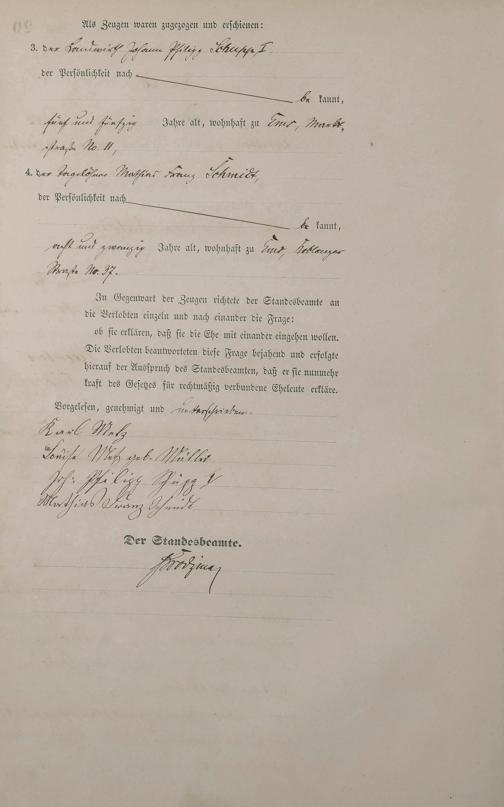 Als Zeugen waren zugezogen und erschienen:
3. der Landwirth Johann Philipp Schupp I.
der Persönlichkeit nach
be kannt,
fünf und fünfzig Jahre alt, wohnhaft zu Ems, Markt-
straße No. 11,
4. der Tagelöhner Mathias Franz Schmidt,
der Persönlichkeit nach
be kannt,
acht und zwanzig Jahre alt, wohnhaft zu Ems, Koblenzer
Straße No. 37.
In Gegenwart der Zeugen richtete der Standesbeamte an
die Verlobten einzeln und nach einander die Frage:
ob sie erklären, daß sie die Ehe mit einander eingehen wollen.
Die Verlobten beantworteten diese Frage bejahend und erfolgte
hierauf der Ausspruch des Standesbeamten, daß er sie nunmehr
kraft des Gesetzes für rechtmäßig verbundene Eheleute erkläre.
Vorgelesen, genehmigt und unterschrieben.
Karl Metz
Louise Metz geb. Müller
Joh. Philipp Schupp I
Mathias Franz Schmidt
Der Standesbeamte.